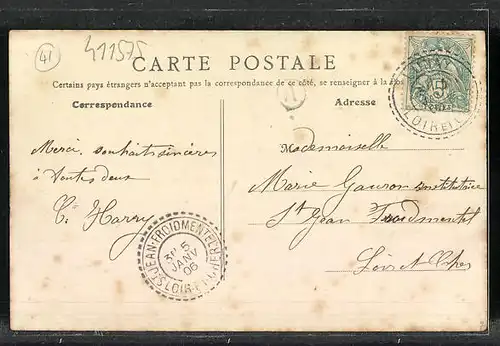 41
411575
CARTE POSTALE
Certains pays étrangers n'acceptant pas la correspondance de ce côté, se renseigner à la
Correspondance
Adresse
Merci, souhaits sincères
à toutes deux
C. Harry
Mademoiselle
Marie Gauron institutrice
St Jean Froidmentel
Loir et Cher
ST JEAN-FROIDMENTEL
5
JANV
06
LOIR-ET-CHER
5
LOIR-ET-